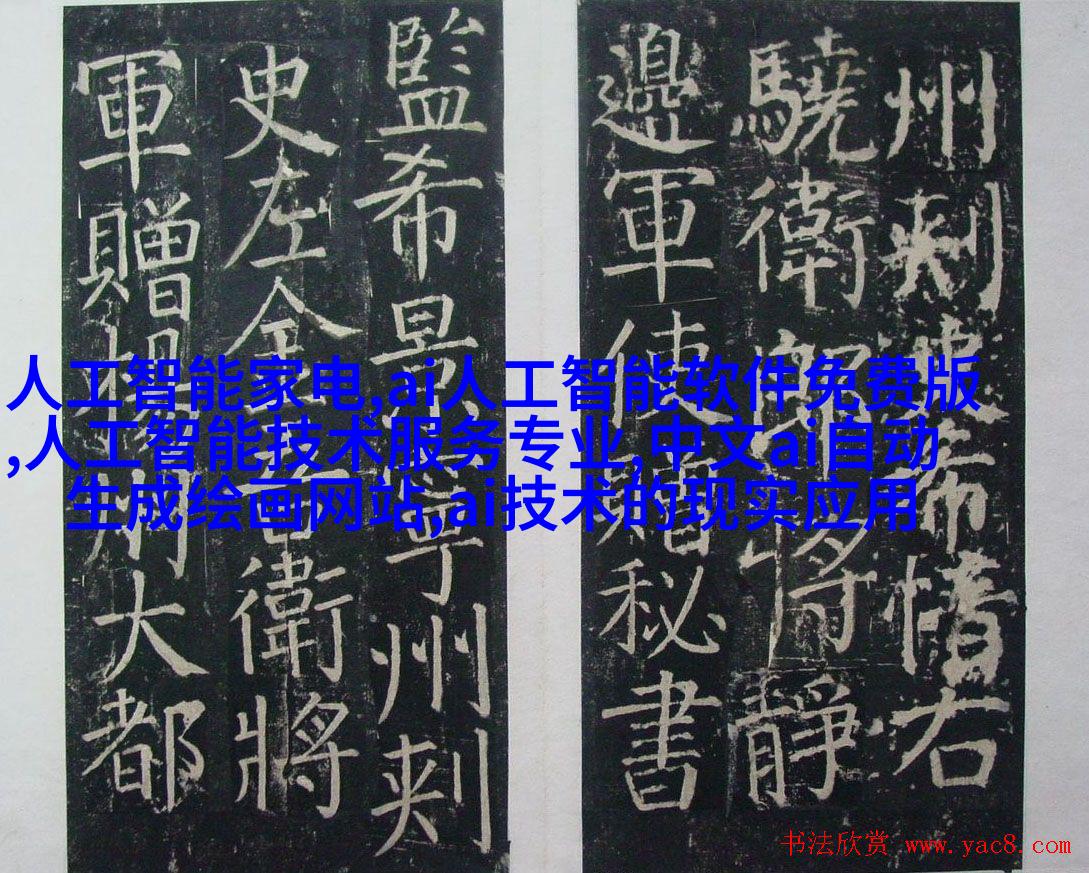 州刺史希愔右
驍衛郎將靜
邊軍使贈秘書
監希景寧州刺
史左金吾衛將
軍贈楊州大都
人工智能家电,ai人工智能软件免费版
,人工智能技术服务专业,中文ai自动
生成绘画网站,ai技术的现实应用
书法欣赏 www.yac8.com